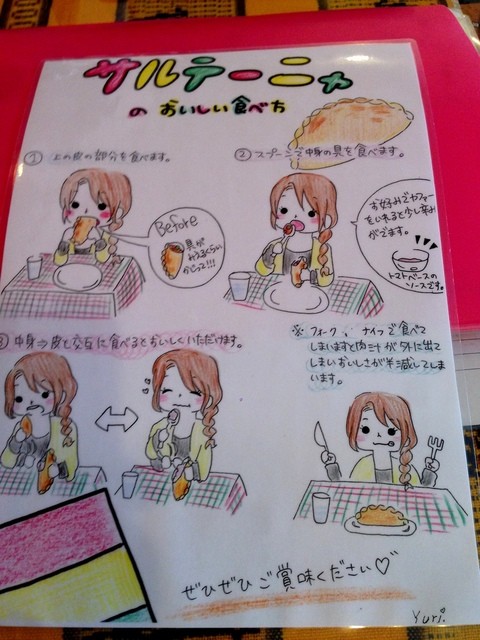 サルテーニャ
の おいしい食べ方
① 上の皮の部分を食べます。
Before
具が
みえるくらい
かじって!!!
② スプーンで中身の具を食べます。
お好みでヤファー
をいれると少し辛み
がでます。
トマトベースの
ソースです。
③ 中身⇒皮と交互に食べるとおいしくいただけます。
※ フォーク、ナイフで食べて
しまいますと肉汁が外に出て
しまいおいしさが半減してしま
います。
ぜひぜひご賞味ください♡
Yuri.